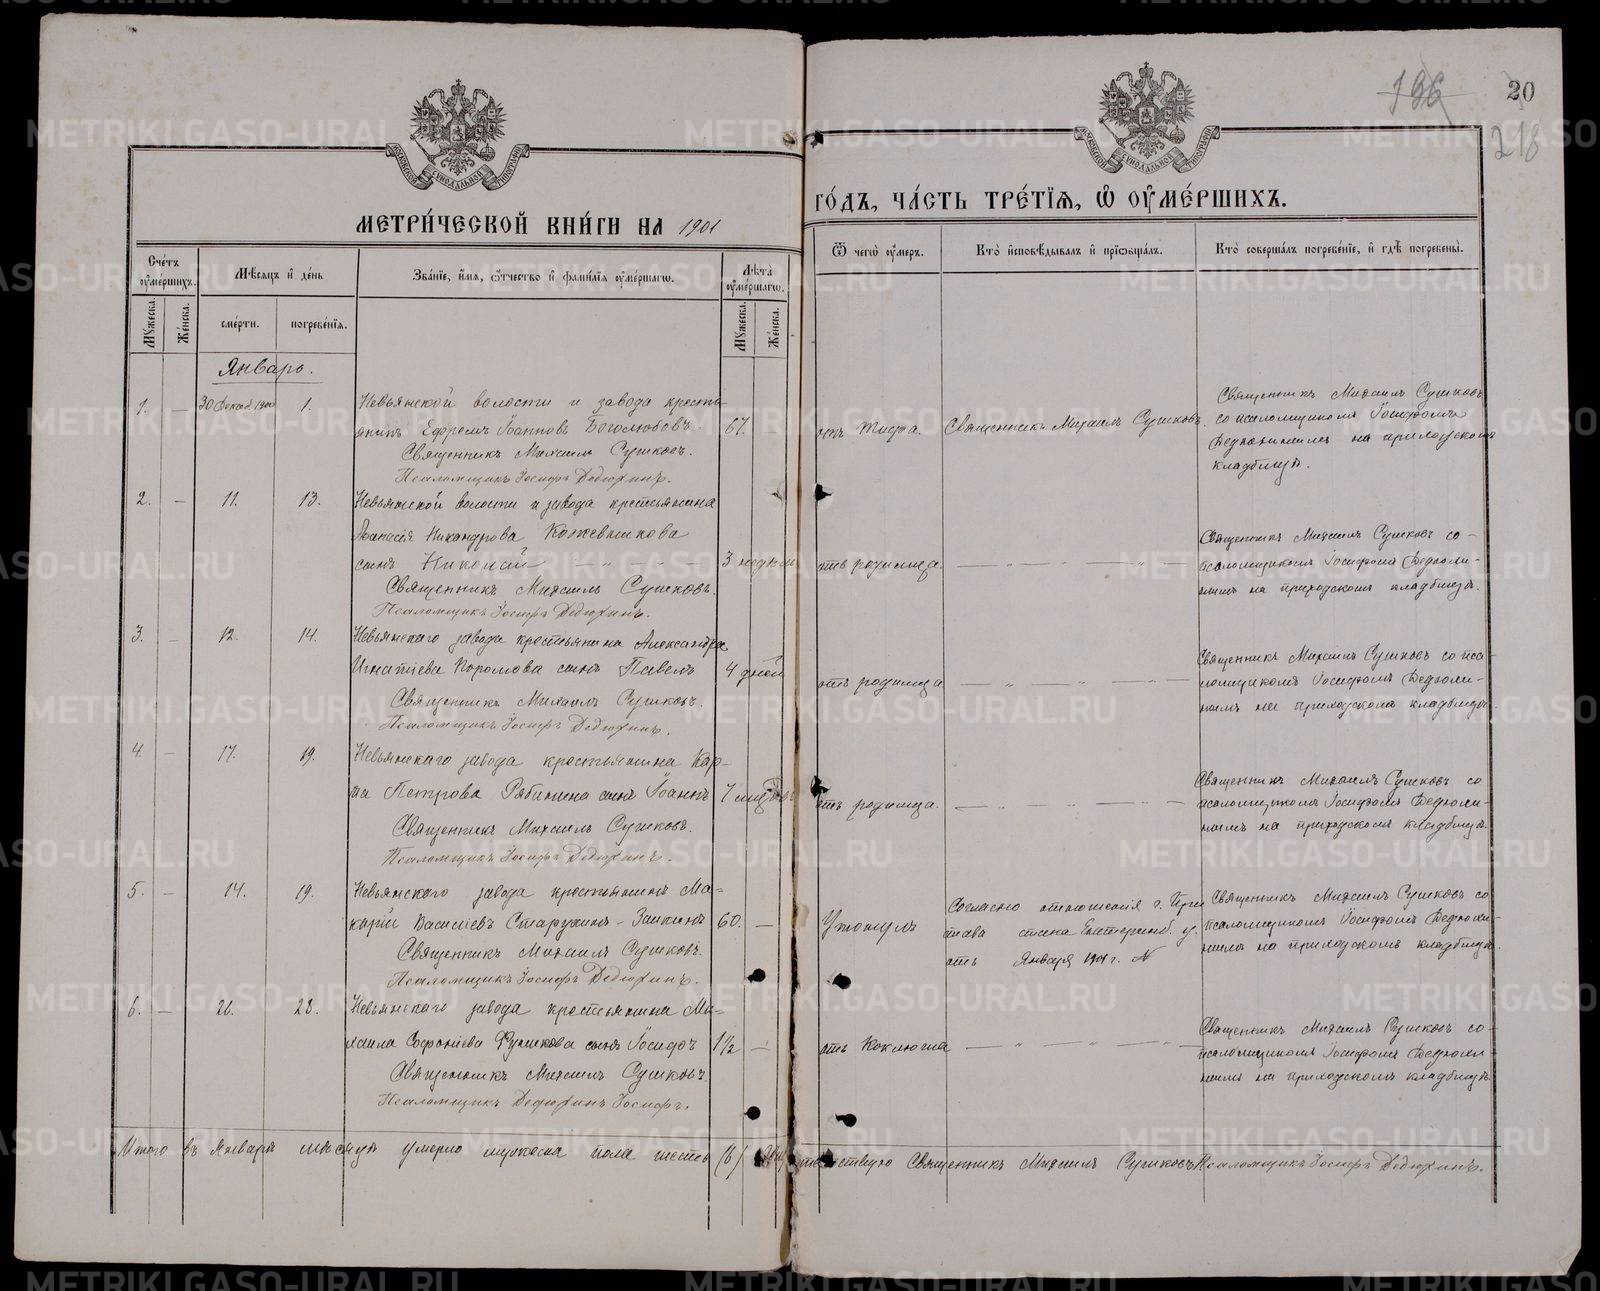 МЕТРИ́ЧЕСКОЙ КНИ́ГИ НА 1901
ГО́ДЪ, ЧА́СТЬ ТРЕ́ТІѦ, Ѽ ОУ҆МЕ́РШИХЪ.
196
20
218
МОСКОВСКОЙ СѴНОДАЛЬНОЙ ТИПОГРАФІИ
МОСКОВСКОЙ СѴНОДАЛЬНОЙ ТИПОГРАФІИ
Сче́тъ оу҆ме́ршихъ.
Мꙋ́жеска.
Же́нска.
Мѣ́сѧцъ и҆ де́нь
сме́рти.
погребе́нїѧ.
Зва́нїе, и҆́мѧ, ѻ҆́тчество и҆ фамилїѧ оу҆ме́ршагѡ.
Лѣ́та оу҆ме́ршагѡ.
Мꙋ́жеска.
Же́нска.
Ѿ чегѡ̀ оу҆́меръ.
Кто̀ и҆сповѣ́дывалъ и҆ прїѡбща́лъ.
Кто̀ соверша́лъ погребе́нїе, и҆ гдѣ̀ погребены̀.
Январь.
1. — 30 Декаб. 1900 1.
Невьянской волости и завода кресть-
янинъ Ефремъ Іоанновъ Боголюбовъ. 67.
Священникъ Михаилъ Сушковъ.
Псаломщикъ Іосифъ Дедюхинъ.
отъ тифа.
Священникъ Михаилъ Сушковъ.
Священникъ Михаилъ Сушковъ
со псаломщикомъ Іосифомъ
Дедюхинымъ на приходскомъ
кладбищѣ.
2. — 11. 13.
Невьянской волости и завода крестьянина
Аѳанасія Никандрова Кожевникова
сынъ Николай 3 недѣли
Священникъ Михаилъ Сушковъ.
Псаломщикъ Іосифъ Дедюхинъ.
отъ родимца.
— " — " —
Священникъ Михаилъ Сушковъ со
псаломщикомъ Іосифомъ Дедюхи-
нымъ на приходскомъ кладбищѣ.
3. — 12. 14.
Невьянскаго завода крестьянина Александра
Игнатіева сынъ Павелъ 4 дней
Священникъ Михаилъ Сушковъ.
Псаломщикъ Іосифъ Дедюхинъ.
отъ родимца
— " — " —
Священникъ Михаилъ Сушковъ со пса-
ломщикомъ Іосифомъ Дедюхи-
нымъ на приходскомъ кладбищѣ.
4. — 17. 19.
Невьянскаго завода крестьянина Кар-
па Петрова Рябинина сынъ Іоаннъ 7
Священникъ Михаилъ Сушковъ.
Псаломщикъ Іосифъ Дедюхинъ.
отъ родимца.
— " — " —
Священникъ Михаилъ Сушковъ со
псаломщикомъ Іосифомъ Дедюхи-
нымъ на приходскомъ кладбищѣ.
5. — 14. 19.
Невьянскаго завода крестьянинъ Ма-
карій Василіевъ Старухинъ-Заикинъ 60. —
Священникъ Михаилъ Сушковъ.
Псаломщикъ Іосифъ Дедюхинъ.
Утонулъ
Согласно отношенія г. При-
става стана Екатеринб. у.
отъ Января 1901 г. №
Священникъ Михаилъ Сушковъ со
псаломщикомъ Іосифомъ Дедюхи-
нымъ на приходскомъ кладбищѣ.
6. — 26. 28.
Невьянскаго завода крестьянина Ми-
хаила Софоніева сынъ Іосифъ 1½ —
Священникъ Михаилъ Сушковъ.
Псаломщикъ Дедюхинъ Іосифъ.
отъ Коклюша
— " — " —
Священникъ Михаилъ Сушковъ со
псаломщикомъ Іосифомъ Дедюхи-
нымъ на приходскомъ кладбищѣ.
Итого въ Январѣ мѣсяцѣ умерло мужеска пола шесть (6) Священникъ Михаилъ Сушковъ Псаломщикъ Іосифъ Дедюхинъ.
METRIKI.GASO-URAL.RU